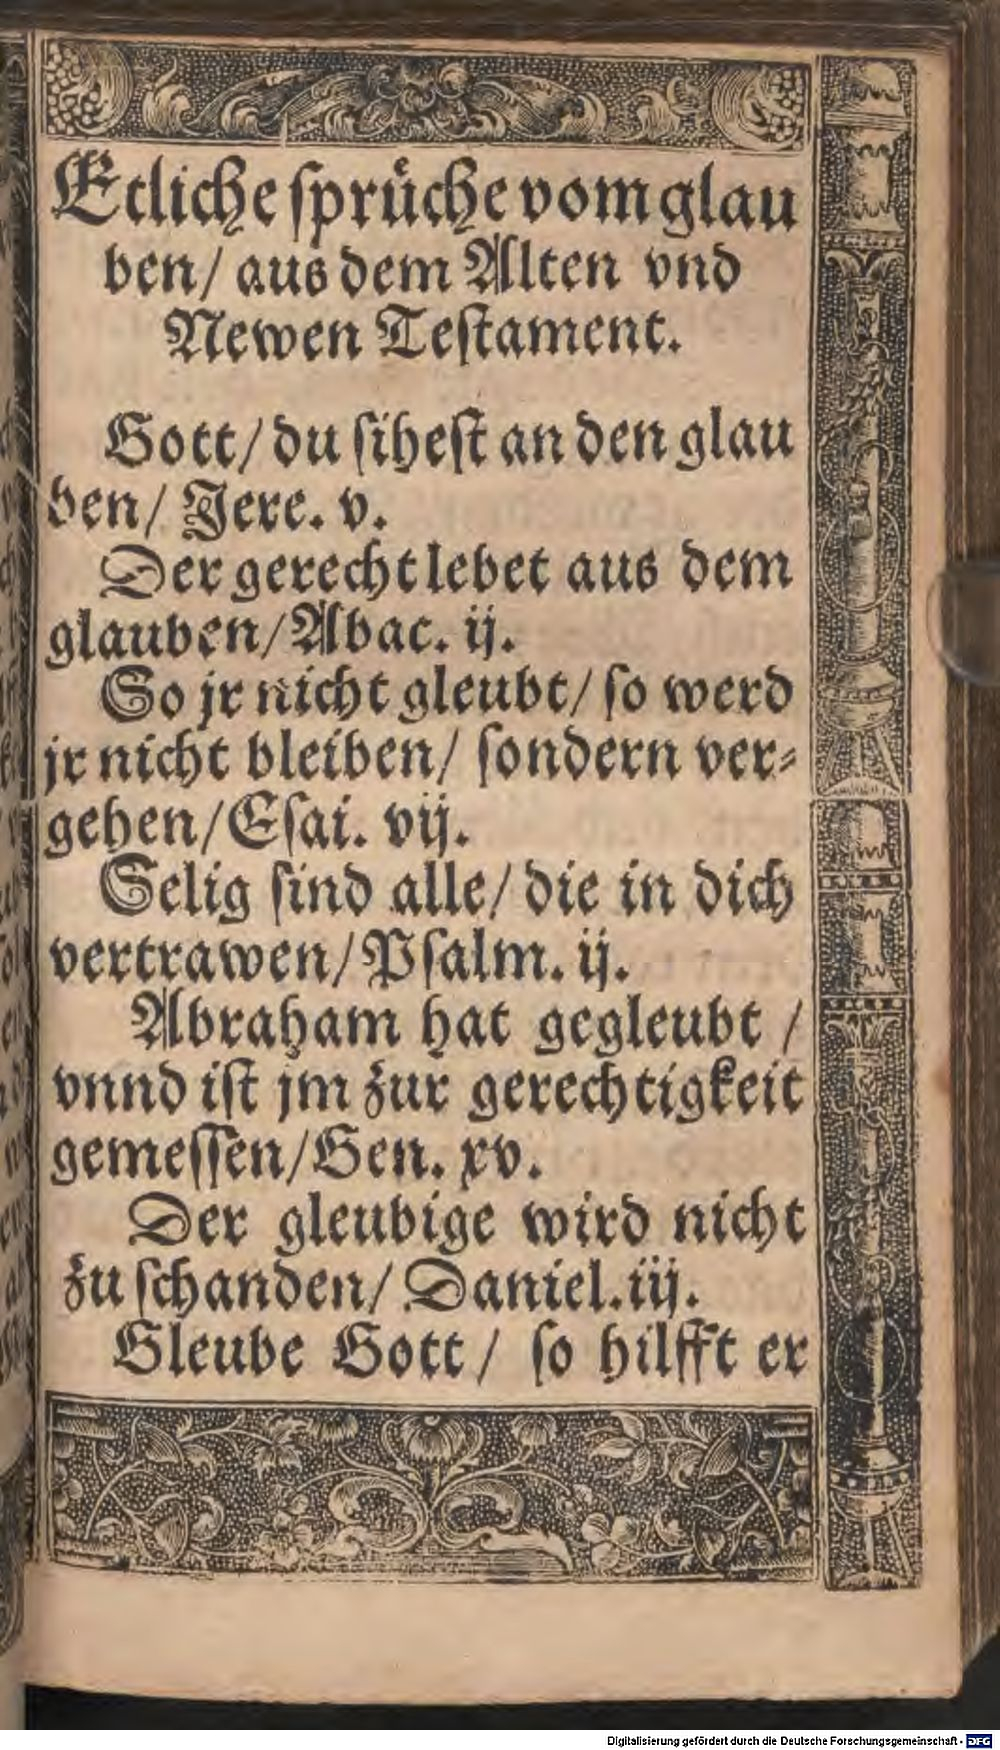 Etliche ſpruͤche vom glau
ben/ aus dem Alten vnd
Newen Teſtament.
Gott/ du ſiheſt an den glau
ben/ Jere. v.
Der gerecht lebet aus dem
glauben/ Abac. ij.
So jr nicht gleubt/ ſo werd
jr nicht bleiben/ ſondern ver⸗
gehen/ Eſai. vij.
Selig ſind alle/ die in dich
vertrawen/ Pſalm. ij.
Abraham hat gegleubt /
vnnd iſt jm zur gerechtigkeit
gemeſſen/ Gen. xv.
Der gleubige wird nicht
zu ſchanden/ Daniel. iij.
Gleube Gott/ ſo hilfft er
Digitalisierung gefördert durch die Deutsche Forschungsgemeinschaft - DFG